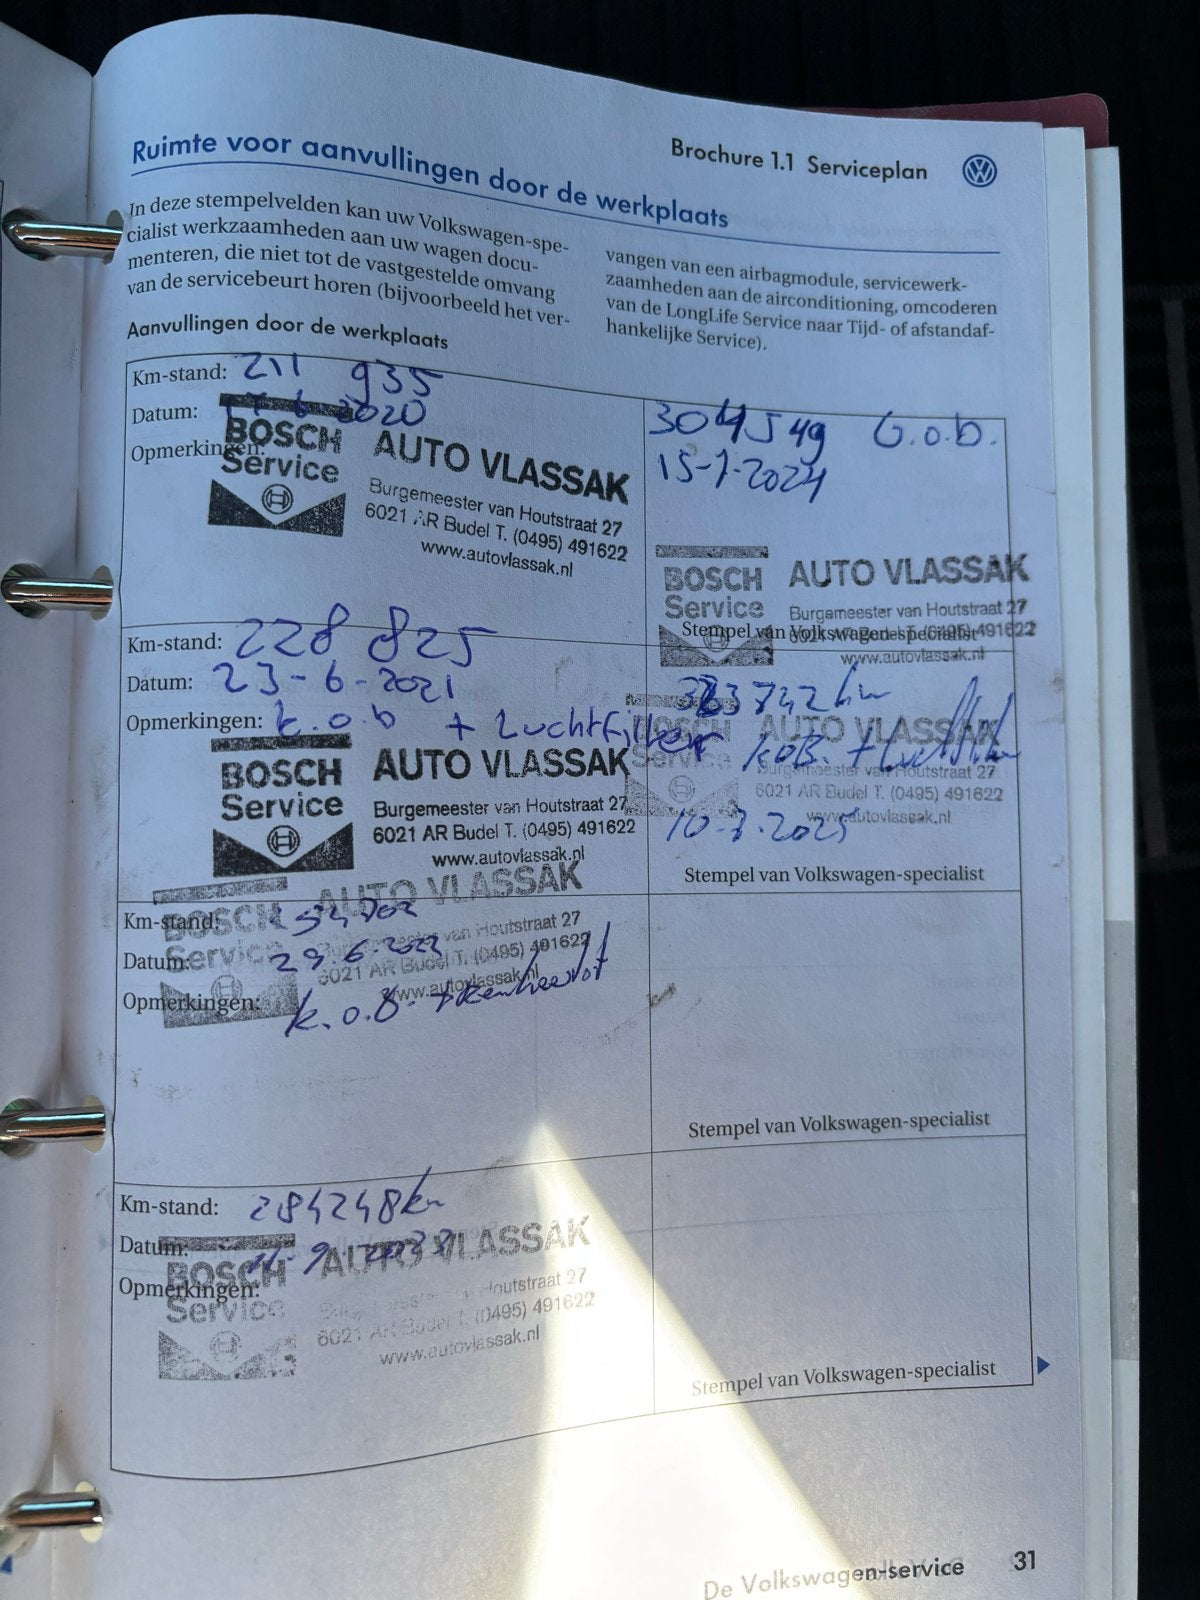 Brochure 1.1 Serviceplan
Ruimte voor aanvullingen door de werkplaats
In deze stempelvelden kan uw Volkswagen-spe-
cialist werkzaamheden aan uw wagen docu-
menteren, die niet tot de vastgestelde omvang
van de servicebeurt horen (bijvoorbeeld het ver-
vangen van een airbagmodule, servicewerk-
zaamheden aan de airconditioning, omcoderen
van de LongLife Service naar Tijd- of afstandaf-
hankelijke Service).
Aanvullingen door de werkplaats
Km-stand: 211 935
Datum: 17 6 2020
Opmerkingen:
BOSCH Service AUTO VLASSAK
Burgemeester van Houtstraat 27
6021 AR Budel T. (0495) 491622
www.autovlassak.nl
Km-stand: 228 825
Datum: 23-6-2021
Opmerkingen: k.o.b + Luchtfilter
BOSCH Service AUTO VLASSAK
Burgemeester van Houtstraat 27
6021 AR Budel T. (0495) 491622
www.autovlassak.nl
Km-stand:
Datum: 29.6.2022
Opmerkingen: k.o.b. +
BOSCH Service AUTO VLASSAK
Burgemeester van Houtstraat 27
6021 AR Budel T. (0495) 491622
www.autovlassak.nl
Km-stand: 284248km
Datum:
Opmerkingen:
BOSCH Service AUTO VLASSAK
Houtstraat 27
6021 AR Budel T. (0495) 491622
www.autovlassak.nl
304549 G.o.b.
15-7-2024
BOSCH Service AUTO VLASSAK
Burgemeester van Houtstraat 27
6021 AR Budel T. (0495) 491622
www.autovlassak.nl
Stempel van Volkswagen-specialist
323742km
KOB. +
10-7-2025
BOSCH Service AUTO VLASSAK
Burgemeester van Houtstraat 27
6021 AR Budel T. (0495) 491622
www.autovlassak.nl
Stempel van Volkswagen-specialist
Stempel van Volkswagen-specialist
Stempel van Volkswagen-specialist
De Volkswagen-service 31